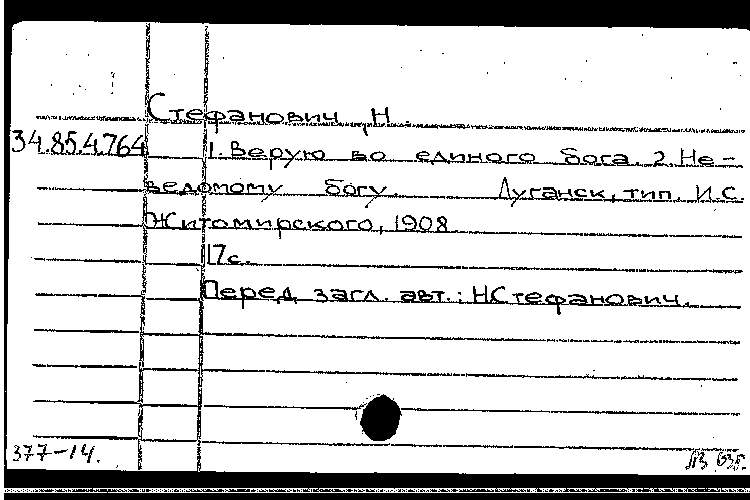 Стефанович, Н.
34.85.4.764
1. Верую во единого бога. 2. Не-
ведомому богу. Луганск, тип. И.С.
Житомирского, 1908.
17с.
Перед загл. авт.: НСтефанович.
377-14.